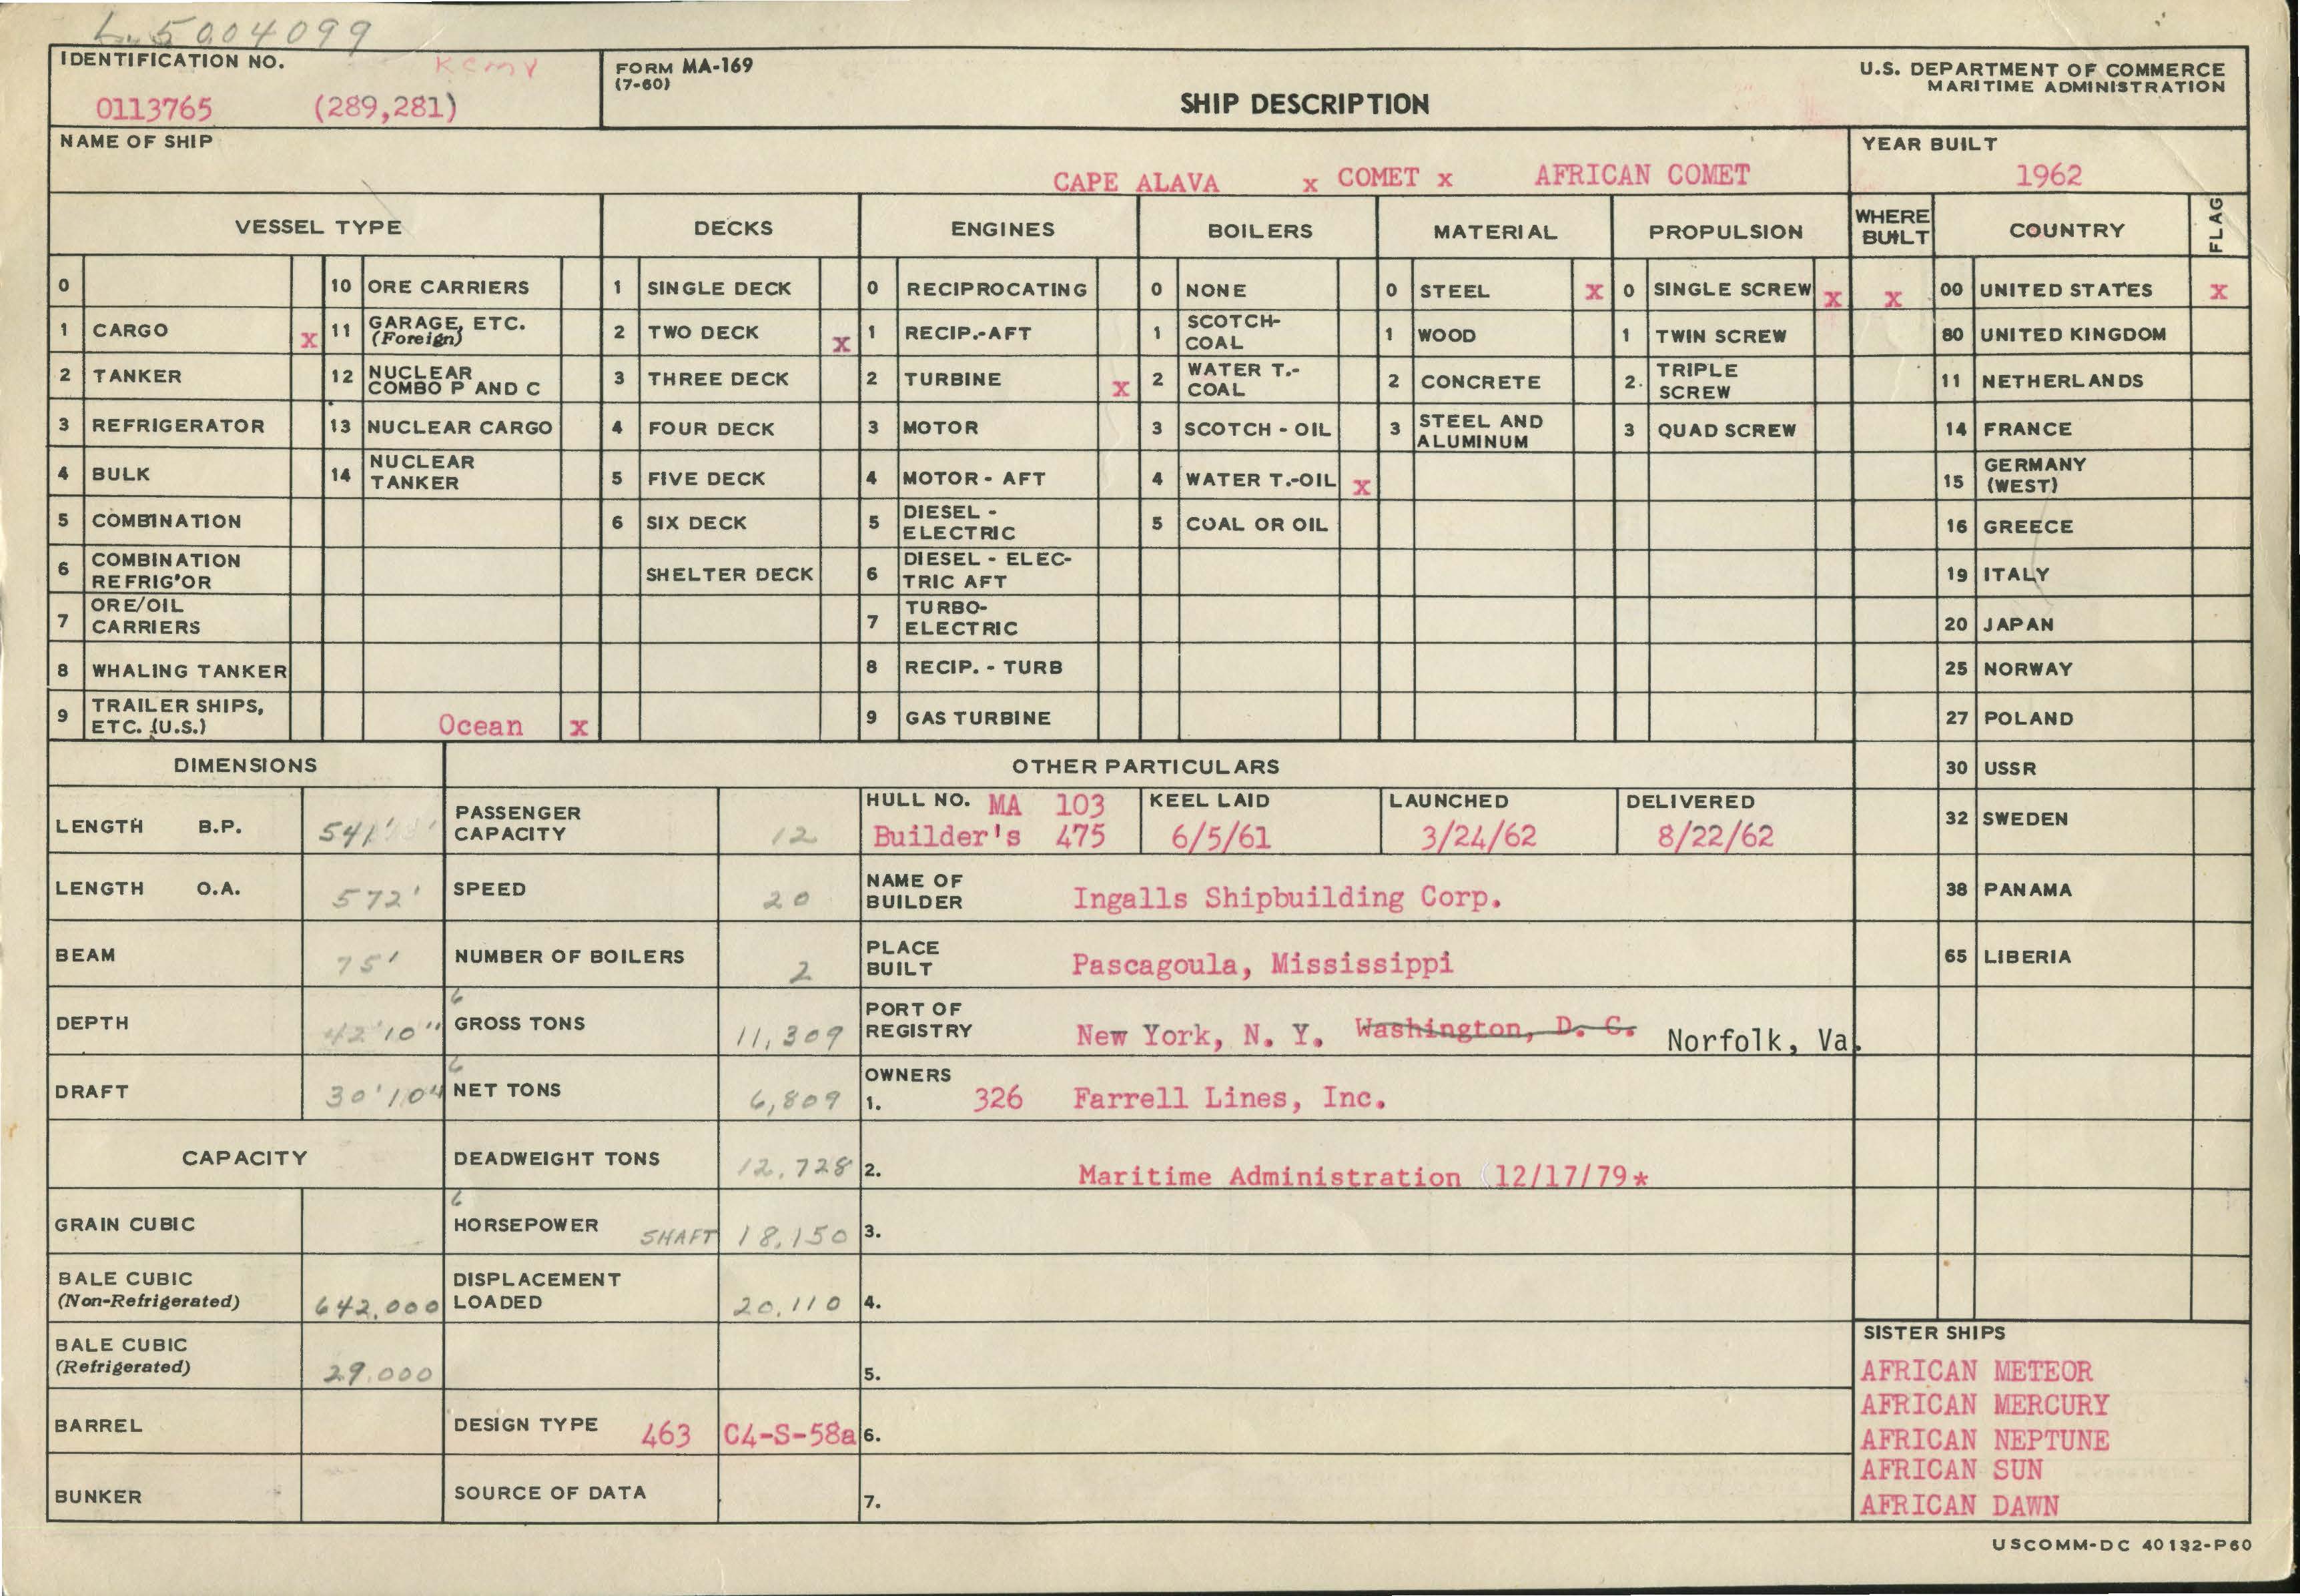 5004099
IDENTIFICATION NO.
KCMY
0113765 (289,281)
FORM MA-169
(7-60)
SHIP DESCRIPTION
U.S. DEPARTMENT OF COMMERCE
MARITIME ADMINISTRATION
NAME OF SHIP
CAPE ALAVA x COMET x AFRICAN COMET
YEAR BUILT
1962
VESSEL TYPE DECKS ENGINES BOILERS MATERIAL PROPULSION WHERE BUILT COUNTRY FLAG
0 10 ORE CARRIERS 1 SINGLE DECK 0 RECIPROCATING 0 NONE 0 STEEL x 0 SINGLE SCREW x x 00 UNITED STATES x
1 CARGO x 11 GARAGE, ETC. (Foreign) 2 TWO DECK x 1 RECIP.-AFT 1 SCOTCH-COAL 1 WOOD 1 TWIN SCREW 80 UNITED KINGDOM
2 TANKER 12 NUCLEAR COMBO P AND C 3 THREE DECK 2 TURBINE x 2 WATER T.-COAL 2 CONCRETE 2. TRIPLE SCREW 11 NETHERLANDS
3 REFRIGERATOR 13 NUCLEAR CARGO 4 FOUR DECK 3 MOTOR 3 SCOTCH - OIL 3 STEEL AND ALUMINUM 3 QUAD SCREW 14 FRANCE
4 BULK 14 NUCLEAR TANKER 5 FIVE DECK 4 MOTOR - AFT 4 WATER T.-OIL x 15 GERMANY (WEST)
5 COMBINATION 6 SIX DECK 5 DIESEL - ELECTRIC 5 COAL OR OIL 16 GREECE
6 COMBINATION REFRIG'OR SHELTER DECK 6 DIESEL - ELEC-TRIC AFT 19 ITALY
7 ORE/OIL CARRIERS 7 TURBO-ELECTRIC 20 JAPAN
8 WHALING TANKER 8 RECIP. - TURB 25 NORWAY
9 TRAILER SHIPS, ETC. (U.S.) Ocean x 9 GAS TURBINE 27 POLAND
DIMENSIONS OTHER PARTICULARS 30 USSR
LENGTH B.P. 541' PASSENGER CAPACITY 12 HULL NO. MA 103 Builder's 475 KEEL LAID 6/5/61 LAUNCHED 3/24/62 DELIVERED 8/22/62 32 SWEDEN
LENGTH O.A. 572' SPEED 20 NAME OF BUILDER Ingalls Shipbuilding Corp. 38 PANAMA
BEAM 75' NUMBER OF BOILERS 2 PLACE BUILT Pascagoula, Mississippi 65 LIBERIA
DEPTH 42'10" 6 GROSS TONS 11,309 PORT OF REGISTRY New York, N. Y. Washington, D. C. Norfolk, Va.
DRAFT 6 NET TONS 6,809 OWNERS 1. 326 Farrell Lines, Inc.
CAPACITY DEADWEIGHT TONS 12,728 2. Maritime Administration (12/17/79*
GRAIN CUBIC 6 HORSEPOWER SHAFT 18,150 3.
BALE CUBIC (Non-Refrigerated) 642,000 DISPLACEMENT LOADED 20,110 4.
BALE CUBIC (Refrigerated) 29,000 5.
BARREL DESIGN TYPE 463 C4-S-58a 6.
BUNKER SOURCE OF DATA 7.
SISTER SHIPS
AFRICAN METEOR
AFRICAN MERCURY
AFRICAN NEPTUNE
AFRICAN SUN
AFRICAN DAWN
USCOMM-DC 40132-P60